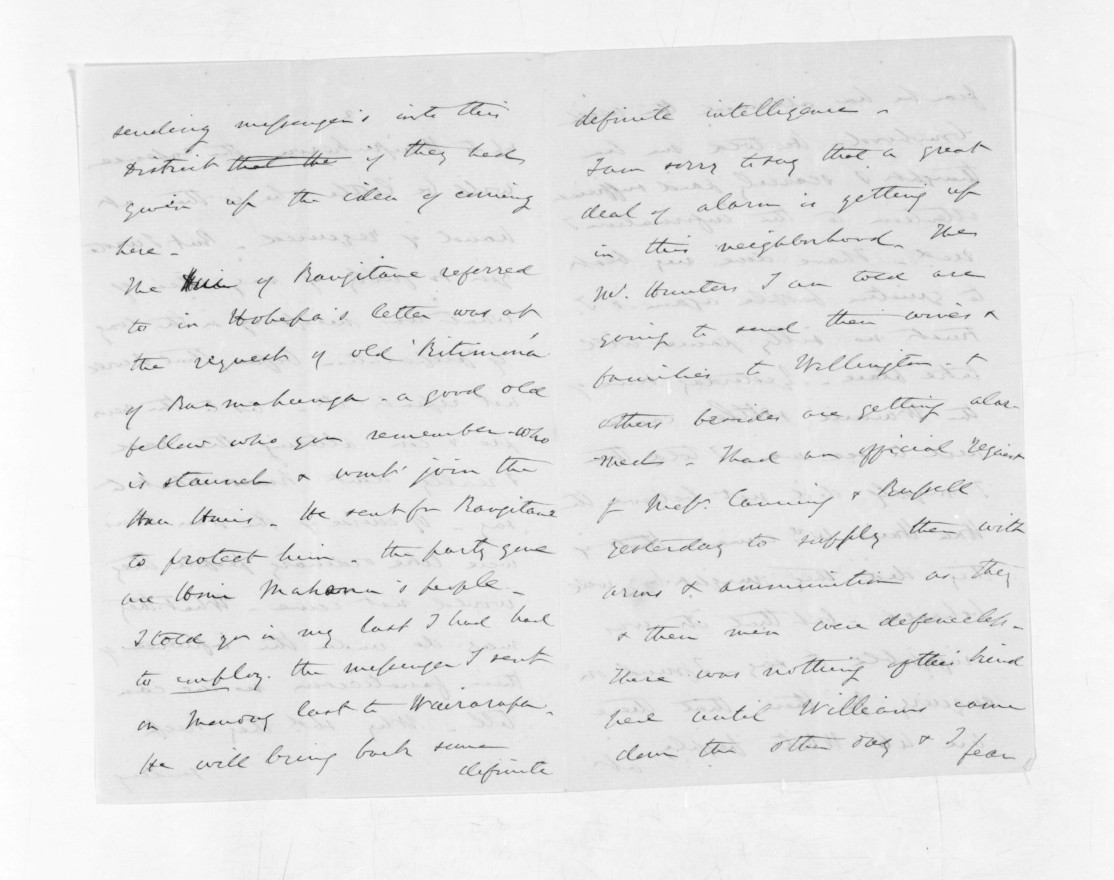 sending messengers into this
District that the if they had
given up the idea of coming
here -
The of Rangitane referred
to in letter was at
the request of old
of Ruamahanga - a good old
fellow who you remember - who
is staunch & wont join the
Hau Haus - He sent for Rangitane
to protect him - the party gone
are people -
I told you in my last I had had
to employ. the messenger I sent
on Monday last to Wairarapa -
He will bring back some
definite
definite intelligence -
I am sorry to say that a great
deal of alarm is getting up
in this neighborhood. The
Mr. Hunters I am told are
going to send their wives &
families to Wellington &
others besides are getting alar-
med - I had an official request
f Messrs. Canning & Russell
yesterday to supply them with
arms & ammunition as they
& their men were defenceless -
There was nothing of this kind
here until Williams came
down the other day & I
fear